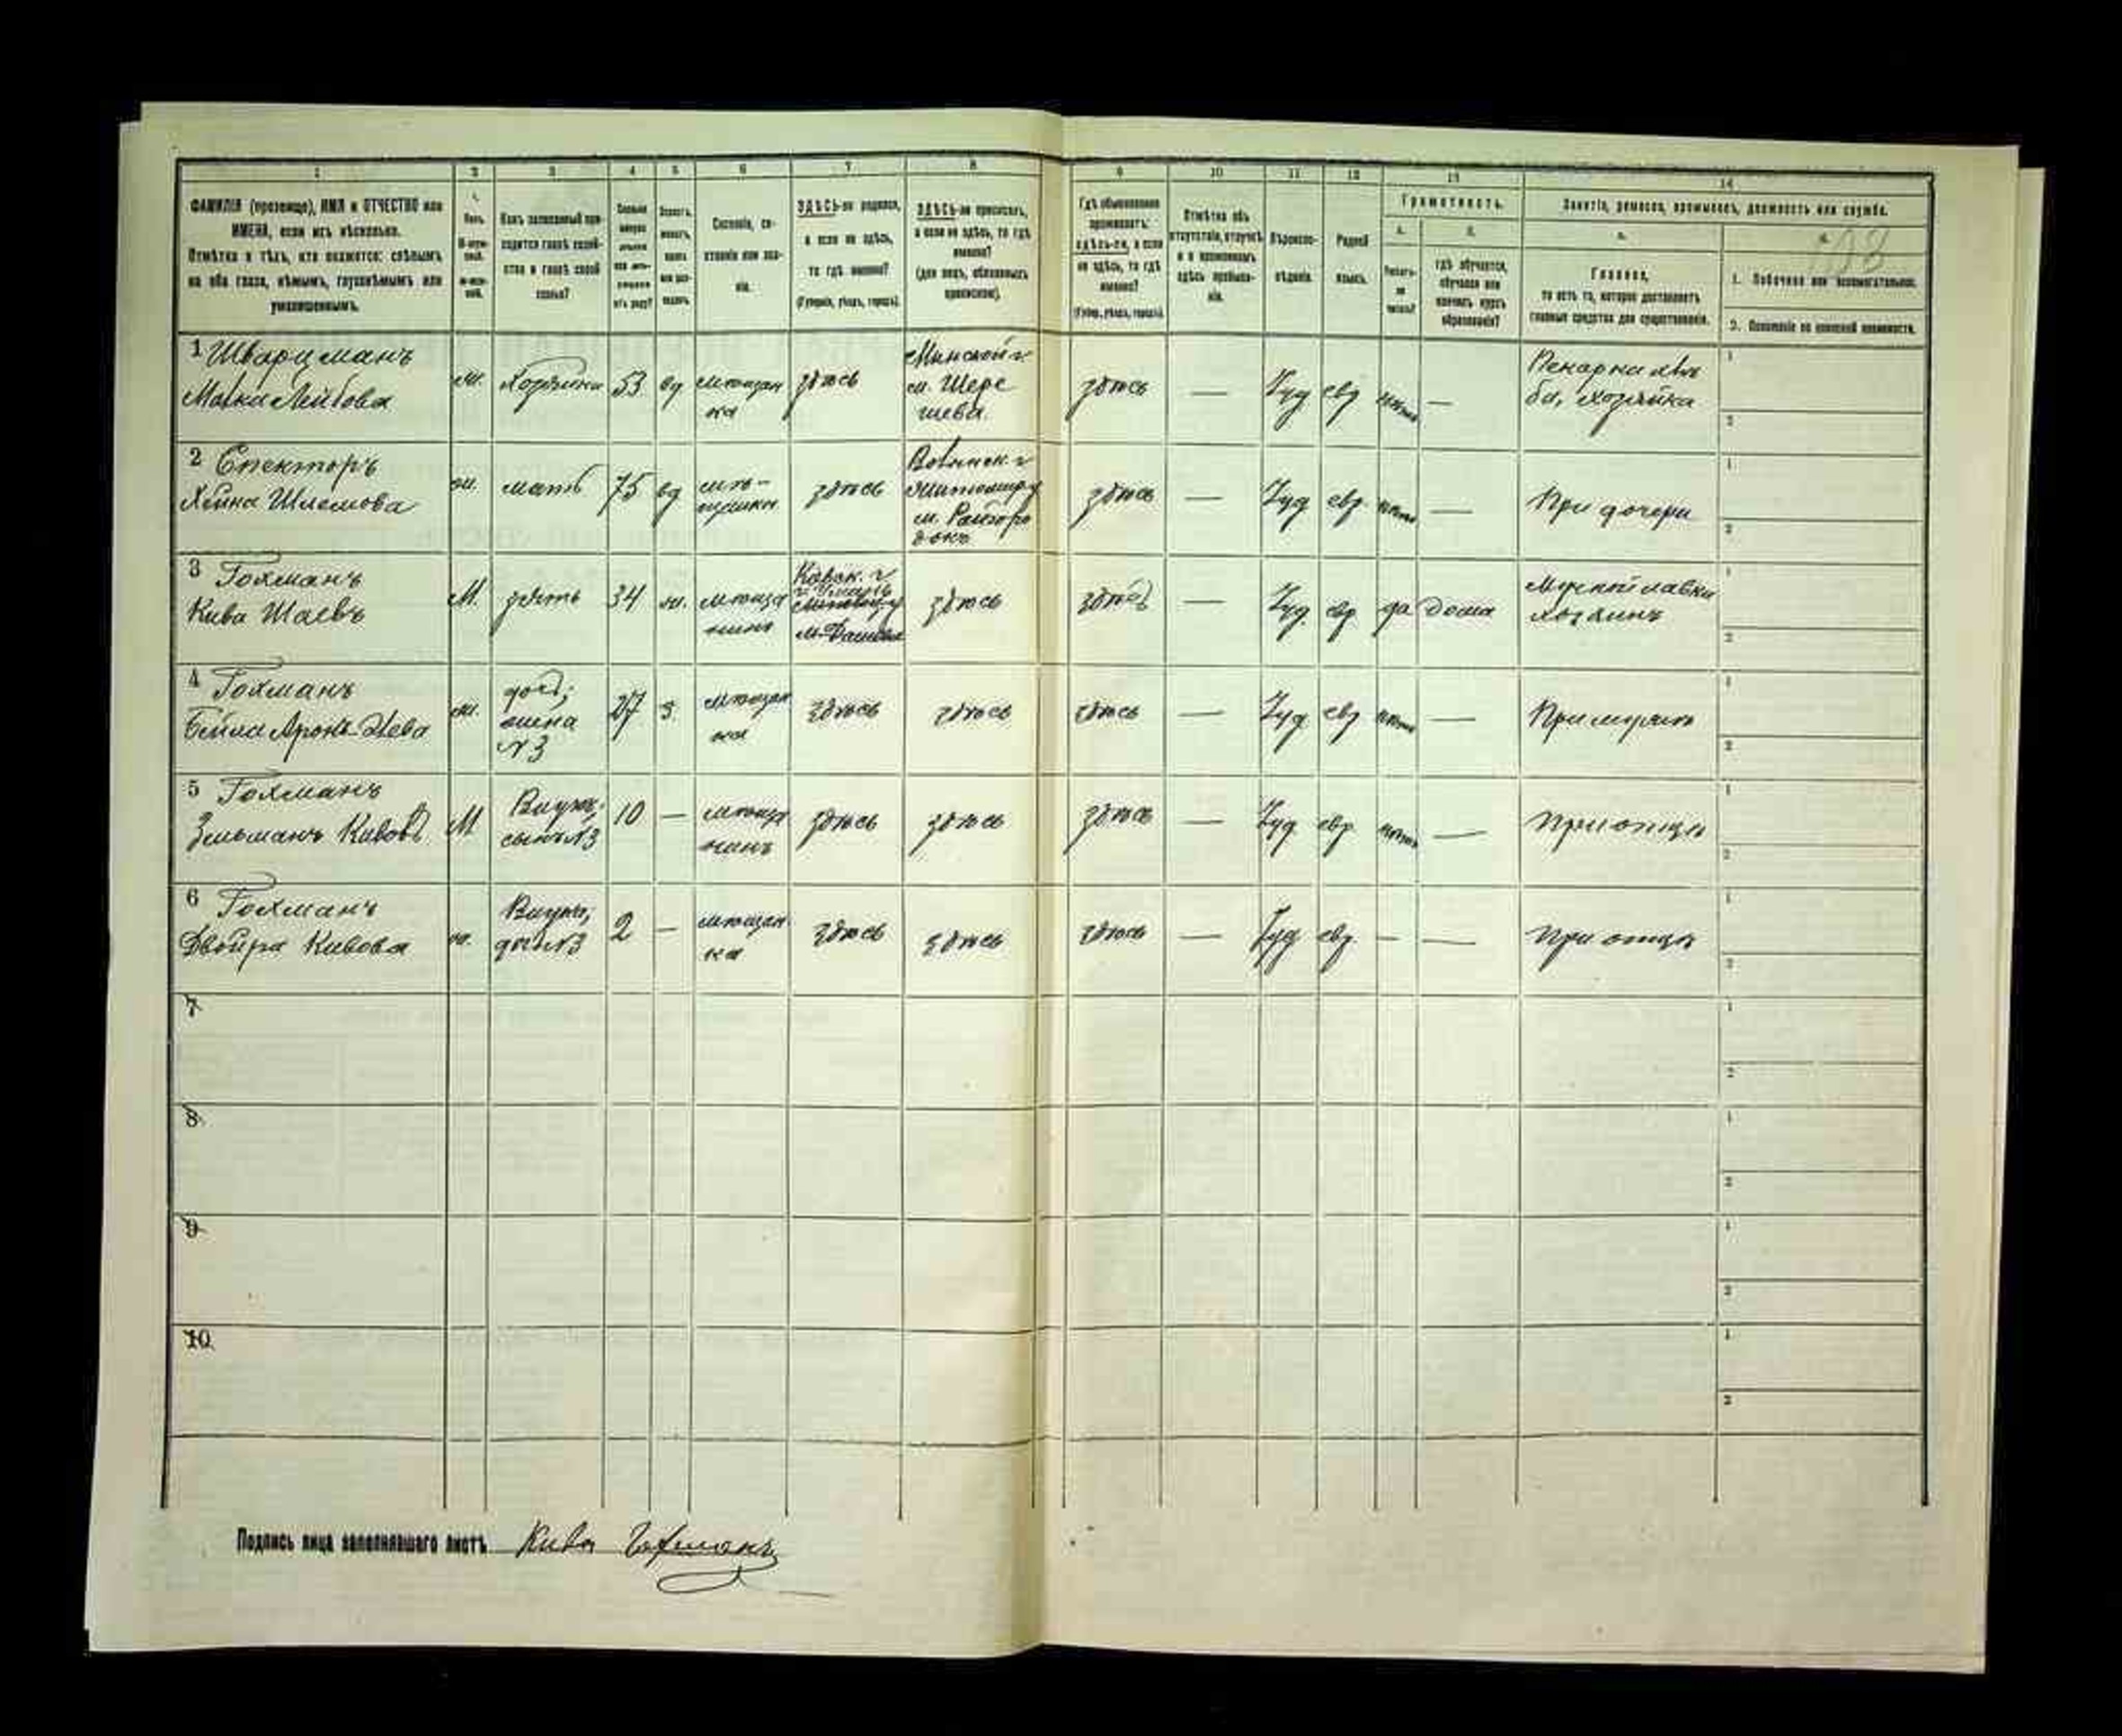 1 2 3 4 5 6 7 8 9 10 11 12 13 14
ФАМИЛІЯ (прозвище), ИМЯ и ОТЧЕСТВО или
ИМЕНА, если ихъ нѣсколько.
Отмѣтка о тѣхъ, кто окажется: слѣпымъ
на оба глаза, нѣмымъ, глухонѣмымъ или
умалишеннымъ.
Полъ.
Какъ записанный при-
ходится главѣ хозяй-
ства и главѣ своей
семьи?
Сословіе, со-
стояніе или зва-
ніе.
ЗДѢСЬ-ли родился,
а если не здѣсь,
то гдѣ именно?
(Губернія, уѣздъ, городъ).
ЗДѢСЬ-ли приписанъ,
а если не здѣсь, то гдѣ
именно?
(для лицъ, обязанныхъ
припискою).
Гдѣ обыкновенно
проживаетъ:
здѣсь-ли, а если
не здѣсь, то гдѣ
именно?
(Губер., уѣздъ, городъ).
Отмѣтка объ
отсутствіи, отлучкѣ
и о временномъ
здѣсь пребыва-
ніи.
Вѣроиспо-
вѣданіе.
Родной
языкъ.
Грамотность.
а.
б.
гдѣ обучается,
обучался или
кончилъ курсъ
образованія?
Занятіе, ремесло, промыселъ, должность или служба.
а.
Главное,
то есть то, которое доставляетъ
главныя средства для существованія.
1. Побочное или вспомогательное.
2. Положеніе по воинской повинности.
1 Шварцманъ
Малка Лейбова
ж. Хозяйка 53 вд мѣщан
ка
здѣсь
Минской г.
м. Шере
шева
здѣсь — Іуд евр нѣтъ —
Пекарня хлѣ
ба, хозяйка
2 Спекторъ
Хейна Шлемова
ж. мать 75 вд мѣ-
щанка
здѣсь
Волынск. г
Житомир у
м. Райгоро
докъ
здѣсь — Іуд евр. нѣтъ —
При дочери
3 Гохманъ
Кива Шаевъ
М. зять 34 ж. мѣща
нинъ
м. Дашевъ
здѣсь
здѣсь — Іуд. евр. да дома
Мучной лавки
хозяинъ
4 Гохманъ
Бейла Аронъ-Лева
ж.
жена
№3
27 з. мѣщан
ка
здѣсь здѣсь
здѣсь — Іуд. евр нѣтъ —
При мужѣ
5 Гохманъ
Зельманъ Кивовъ
М Внукъ;
сынъ №3
10 — мѣща
нинъ
здѣсь здѣсь
здѣсь — Іуд. евр. нѣтъ —
При отцѣ
6 Гохманъ
Двойра Кивова
ж. Внучк;
дочь №3
2 — мѣщан
ка
здѣсь здѣсь
здѣсь — Іуд евр. — —
При отцѣ
7
8
9
10
Подпись лица заполнявшаго листъ Кива Гохманъ